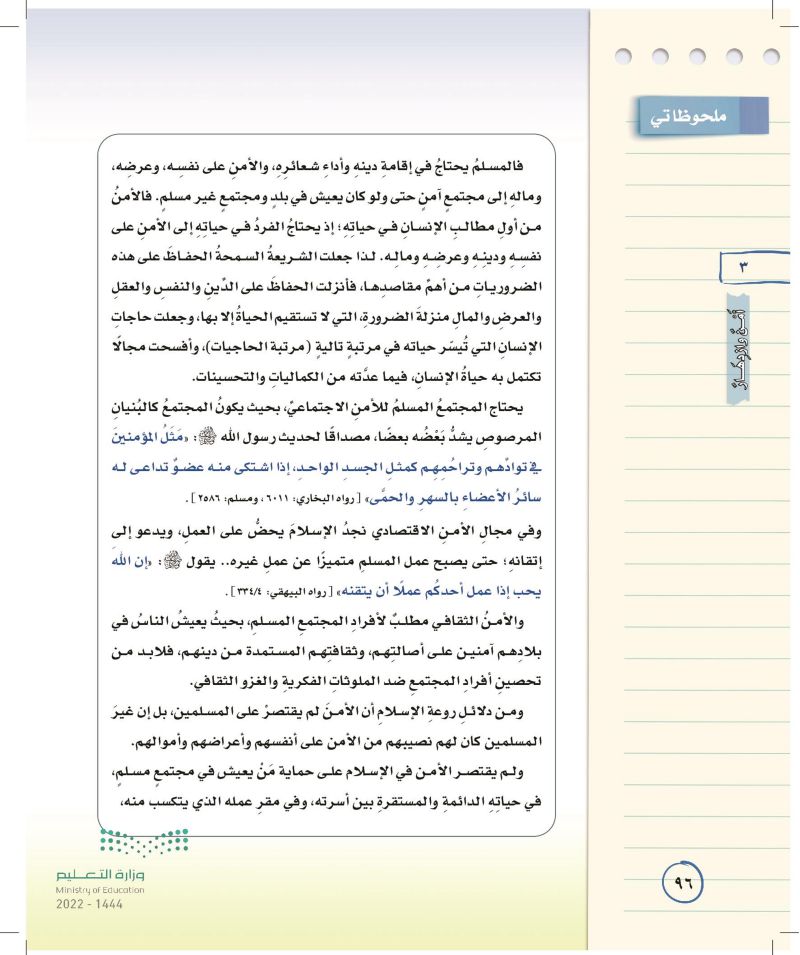 ملحوظاتي
٣
أمنٌ وازدهارٌ
فالمسلمُ يحتاجُ في إقامةِ دينهِ وأداءِ شعائرِه، والأمنِ على نفسِه، وعرضِه،
ومالهِ إلى مجتمعٍ آمنٍ حتى ولو كان يعيش في بلدٍ ومجتمعٍ غير مسلمٍ. فالأمنُ
من أولِ مطالبِ الإنسانِ في حياتِهِ؛ إذ يحتاجُ الفردُ في حياتِهِ إلى الأمنِ على
نفسِهِ ودينِهِ وعرضِهِ ومالِه. لذا جعلت الشريعةُ السمحةُ الحفاظَ على هذه
الضرورياتِ من أهمِّ مقاصدِها، فأنزلت الحفاظَ على الدِّينِ والنفسِ والعقلِ
والعرضِ والمالِ منزلةَ الضرورةِ، التي لا تستقيم الحياةُ إلا بها، وجعلت حاجاتِ
الإنسانِ التي تُيسّر حياته في مرتبةٍ تاليةٍ (مرتبة الحاجيات)، وأفسحت مجالًا
تكتمل به حياةُ الإنسانِ، فيما عدَّته من الكمالياتِ والتحسينات.
يحتاج المجتمعُ المسلمُ للأمنِ الاجتماعيِّ، بحيث يكونُ المجتمعُ كالبُنيانِ
المرصوصِ يشدُّ بَعْضُه بعضًا، مصداقًا لحديث رسول الله ﷺ: «مَثَلُ المؤمنينَ
في توادِّهم وتراحُمِهِم كمثلِ الجسدِ الواحدِ، إذا اشتكى منه عضوٌ تداعى له
سائرُ الأعضاءِ بالسهرِ والحمَّى» [رواه البخاري: ٦٠١١، ومسلم: ٢٥٨٦].
وفي مجالِ الأمنِ الاقتصادي نجدُ الإسلامَ يحضُّ على العملِ، ويدعو إلى
إتقانِه؛ حتى يصبح عمل المسلمِ متميزًا عن عملِ غيرِه.. يقول ﷺ: «إن اللهَ
يحب إذا عمل أحدكُم عملًا أن يتقنه» [رواه البيهقي: ٣٣٤/٤].
والأمنُ الثقافي مطلبٌ لأفرادِ المجتمعِ المسلمِ، بحيثُ يعيشُ الناسُ في
بلادِهم آمنين على أصالتِهم، وثقافتِهم المستمدة من دينهم، فلابد من
تحصينِ أفرادِ المجتمعِ ضد الملوثاتِ الفكريةِ والغزوِ الثقافي.
ومن دلائلِ روعةِ الإسلامِ أن الأمنَ لم يقتصرْ على المسلمين، بل إن غيرَ
المسلمين كان لهم نصيبهم من الأمن على أنفسهم وأعراضهم وأموالهم.
ولم يقتصر الأمن في الإسلام على حماية مَنْ يعيش في مجتمعٍ مسلمٍ،
في حياتِهِ الدائمةِ والمستقرةِ بين أسرته، وفي مقرِ عمله الذي يتكسب منه،
وزارة التعليم
Ministry of Education
2022 - 1444
٩٦